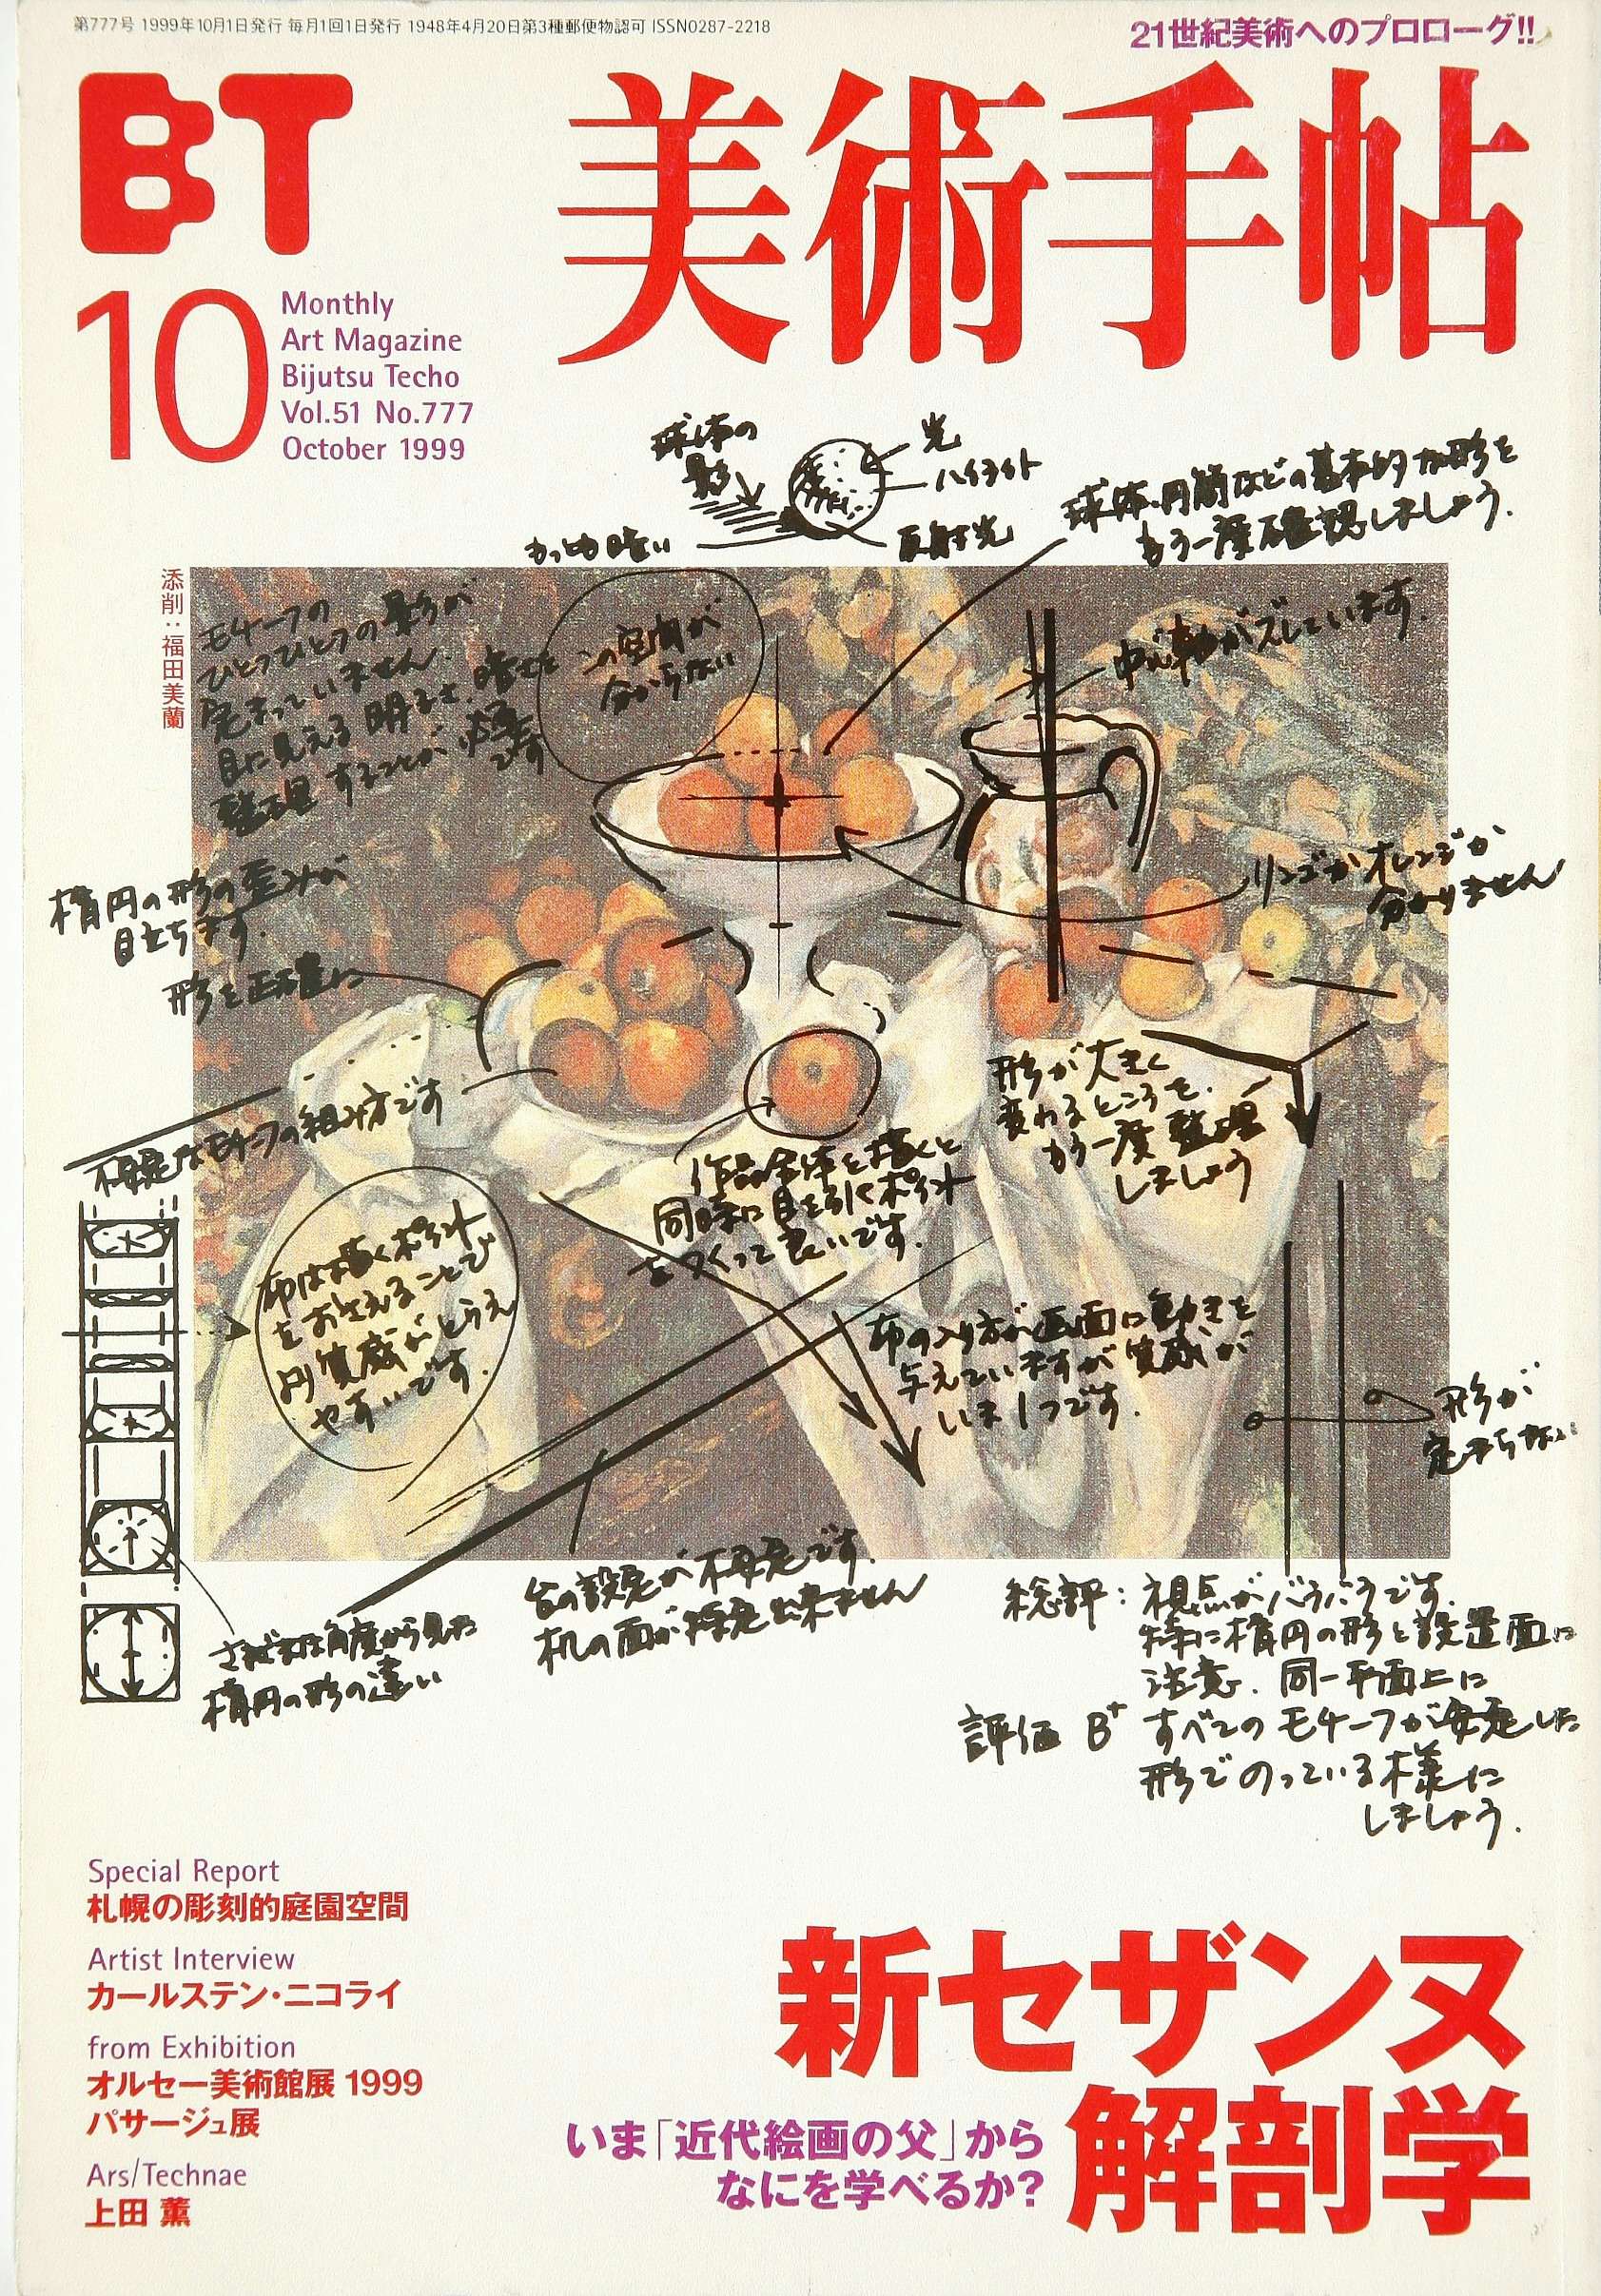 第777号 1999年10月1日発行 毎月1回1日発行 1948年4月20日第3種郵便物認可 ISSN0287-2218
21世紀美術へのプロローグ!!
BT
美術手帖
10
Monthly
Art Magazine
Bijutsu Techo
Vol.51 No.777
October 1999
球体の
影
光
ハイライト
反射光
もっとも暗い
球体、円筒などの基本的な形を
もう一度確認しましょう.
添削:福田美蘭
モチーフの
ひとつひとつの影が
定まっていません.
目に見える明るさ、暗さを
整理することが必要
です
この空間が
分からない
中心軸がズレています.
リンゴかオレンジか
分かりません
楕円の形の歪みが
目立ちます.
形を正確に
不安定なモチーフの組み方です
形が大きく
変わるところを.
もう一度整理
しましょう
作品全体を描くと
同時に目を引くポイント
をつくって良いです.
布は描くポイント
をおさえることで
より質感がとらえ
やすいです.
布の入り方が画面に動きを
与えていますが質感が
いま1つです.
形が
定まらない
台の設定が不安定です.
机の面が特定出来ません
さまざまな角度から見た
楕円の形の違い
総評:視点がバラバラです.
特に楕円の形と設置面に
注意.同一平面上に
評価 B+ すべてのモチーフが安定した
形でのっている様に
しましょう.
Special Report
札幌の彫刻的庭園空間
Artist Interview
カールステン・ニコライ
from Exhibition
オルセー美術館展 1999
パサージュ展
Ars/Technae
上田 薫
新セザンヌ
解剖学
いま「近代絵画の父」から
なにを学べるか?